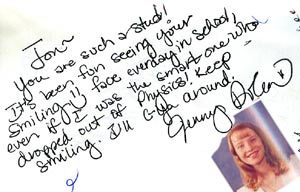 Jon~
You are such a stud!
It's been fun seeing your
smiling :) face everday in school,
even if I was the smart one who
dropped out of Physics! Keep
smiling. I'll C-Ya around.
Jenny